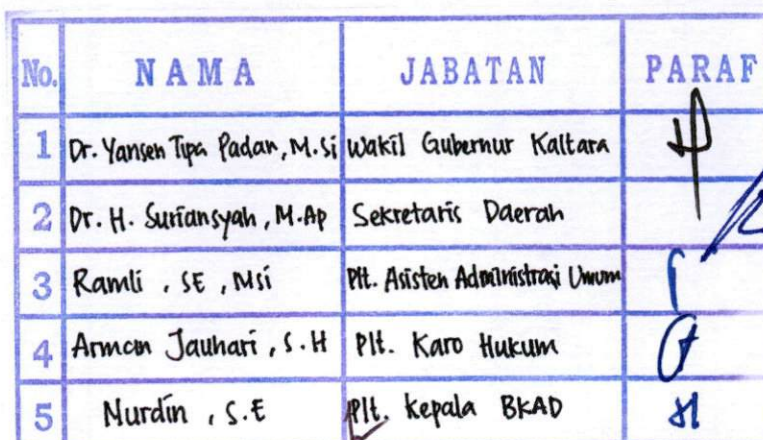 No. NAMA JABATAN PARAF
1 Dr. Yansen Tipa Padan, M.Si Wakil Gubernur Kaltara
2 Dr. H. Suriansyah, M.Ap Sekretaris Daerah
3 Ramli, SE, Msi Plt. Asisten Administrasi Umum
4 Arman Jauhari, S.H Plt. Karo Hukum
5 Nurdin, S.E Plt. Kepala BKAD